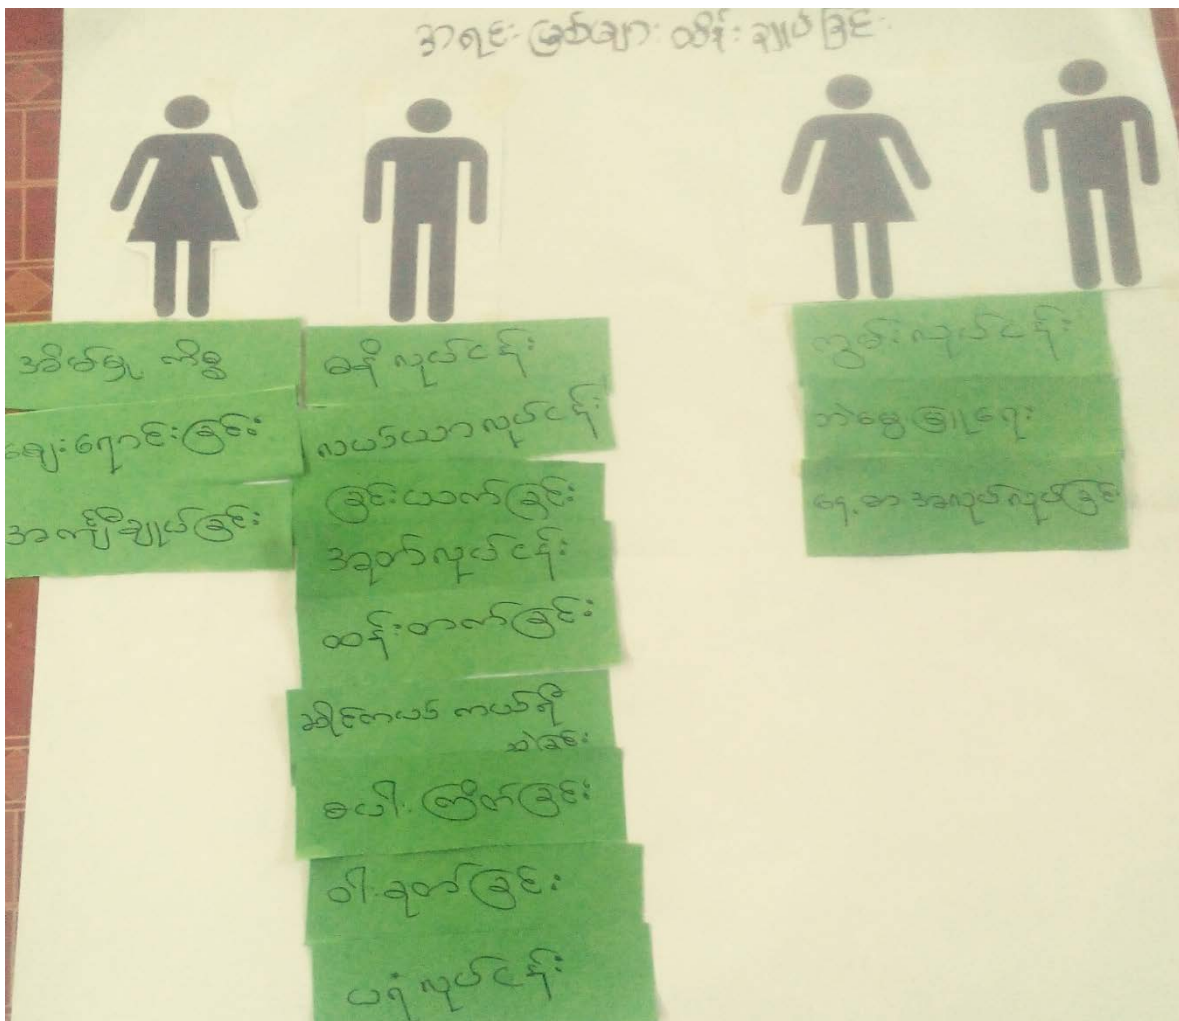 အရင်းမြစ်များ ထိန်းချုပ်ခြင်း
အိမ်မှု ကိစ္စ
ဈေးရောင်းခြင်း
အင်္ကျီချုပ်ခြင်း
ဓနိလုပ်ငန်း
လယ်ယာလုပ်ငန်း
ခြင်းယက်ခြင်း
အုတ်လုပ်ငန်း
ထန်းတက်ခြင်း
ဆိုင်ကယ် ကယ်ရီ
ဆွဲခြင်း
စပါးကြိတ်ခြင်း
ဝါးခုတ်ခြင်း
ပရံလုပ်ငန်း
ကွမ်းလုပ်ငန်း
ဘဲမွေးမြူရေး
နေ့စားအလုပ်လုပ်ခြင်း